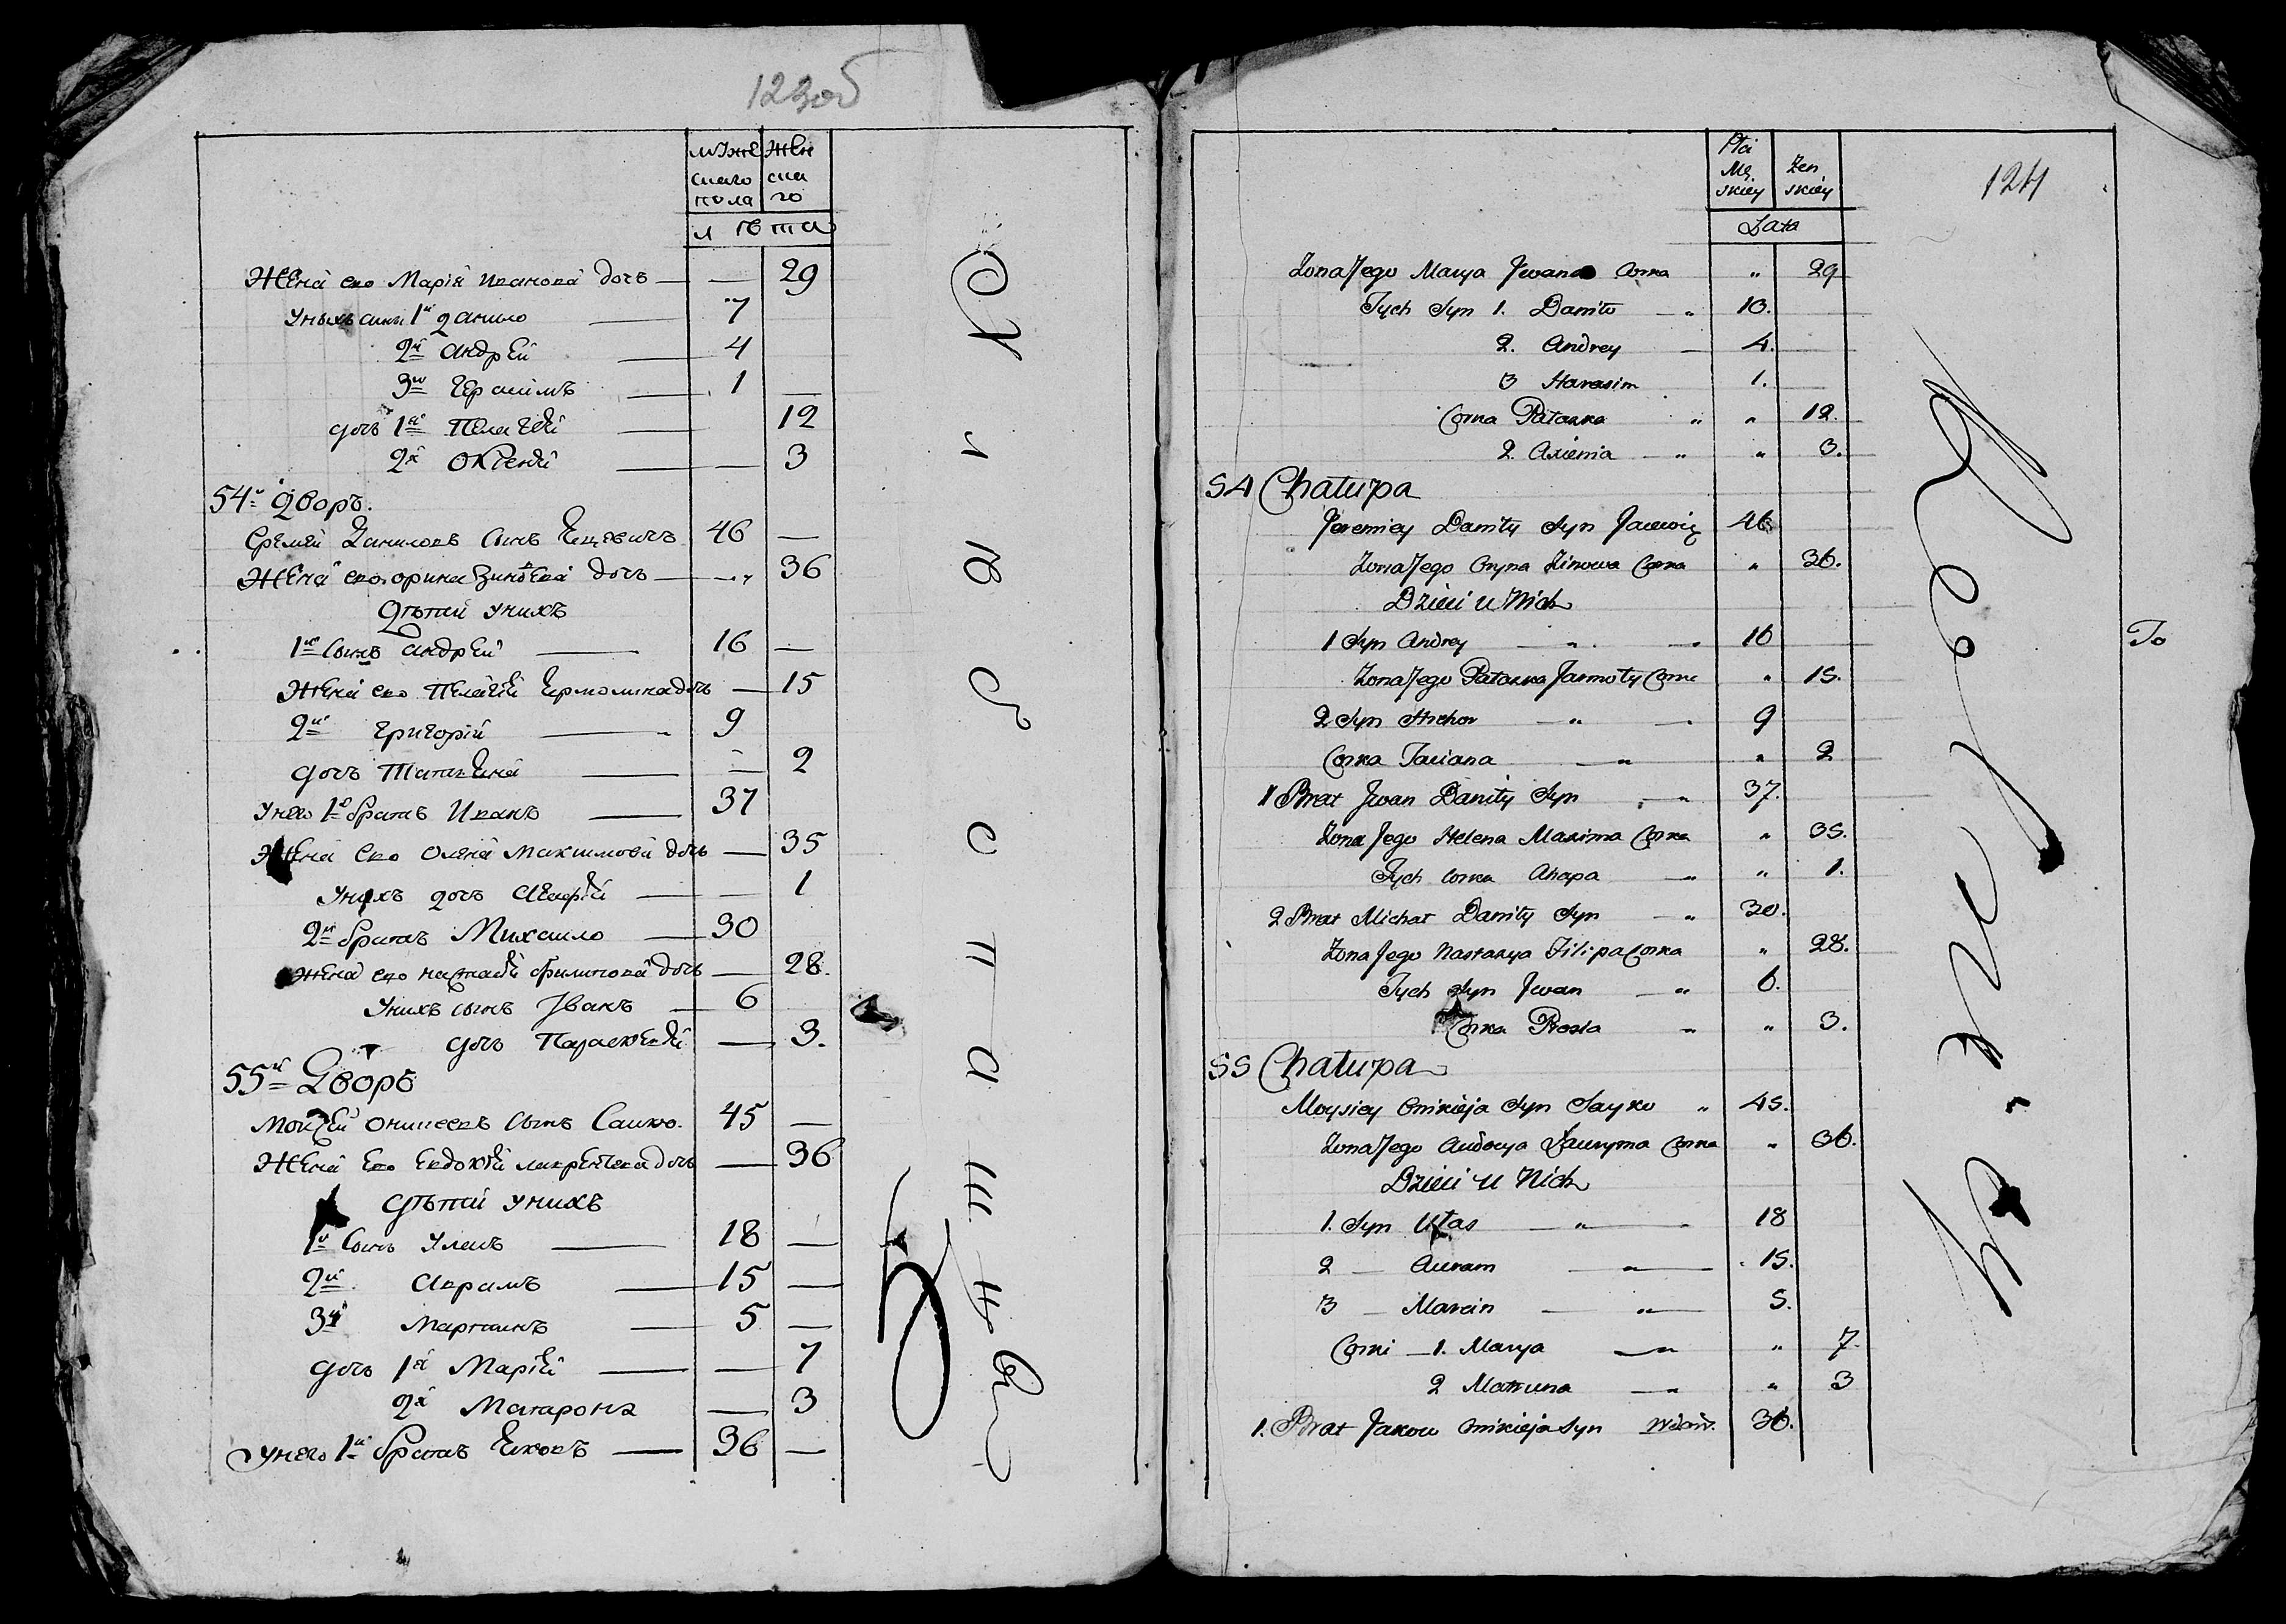 123об
мужескаго пола
женскаго
лѣта
Жена его Марія Иванова дочь — — 29
У них сын 1й Данило — 7
2й Андрей — 4
3й Герасимъ — 1 —
дочь 1я Пелагея — 12
2я Оксенія — — 3
54й Дворъ.
Еремей Даниловъ сынъ Яцевичъ 46 —
Жена его Орина Зинѣва дочь — — 36
Дѣти у нихъ
1й Сынъ Андрей — 16 —
Жена его Пелагея Ярмолина дочь — 15
2й Григорій — 9
дочь Татаяна — — 2
У него 1й братъ Иванъ — 37
Жена его Олена Максимова дочь — 35
У нихъ дочь Агафія — — 1
2й братъ Михайло — 30
Жена его Настася Филипова дочь — 28.
У нихъ сынъ Іванъ — 6
дочь Параскевія — 3.
55й Дворъ
Мойсей Оникеевъ сынъ Сайко. 45 —
Жена его Евдокія Лавренѣва дочь — 36
Дѣти у нихъ
1й Сынъ Улясъ — 18 —
2й Аврамъ — 15 —
3й Мартинъ — 5 —
дочь 1я Марія — — 7
2я Матарона — 3
У него 1й братъ Яковъ — 36 —
124
Płci Męskiey
Żenskiey
Lata
Żona Jego Marya Jwana Corka " 29
Tych Syn 1. Daniło — " 10.
2. Andrey — 4.
3 Harasim 1.
Corka Pałaxka " " 12.
2. Axienia — " " 3.
54 Chałupa
Jeremiey Daniły Syn Jacewicz 46.
Żona Jego Oryna Zinowa Corka " 36.
Dzieci u Nich
1 Syn Andrey — " — 16
To
Żona Jego Pałaxka Jarmoły Corka " 15.
2 Syn Hrehor — " — 9
Corka Taciana — " " 2
1 Brat Jwan Daniły Syn — " 37.
Żona Jego Helena Maxima Corka " 35.
Tych Corka Ahapa — " " 1.
2 Brat Michał Daniły Syn — " 30.
Żona Jego Nastazya Filipa Corka " 28.
Tych Syn Jwan — " 6.
Corka Prosia — " " 3.
55 Chałupa
Moysiey Onikieja Syn Sayko " 45.
Żona Jego Audocya Ławryna Corka " 36.
Dzieci u Nich
1. Syn Ułas — " — 18
2 — Auram — " — 15.
3 — Marcin — " — 5.
Corki — 1. Marya — " " 7.
2 Matruna — " " 3
1. Brat Jakow Onikieja Syn Wdow. 36.